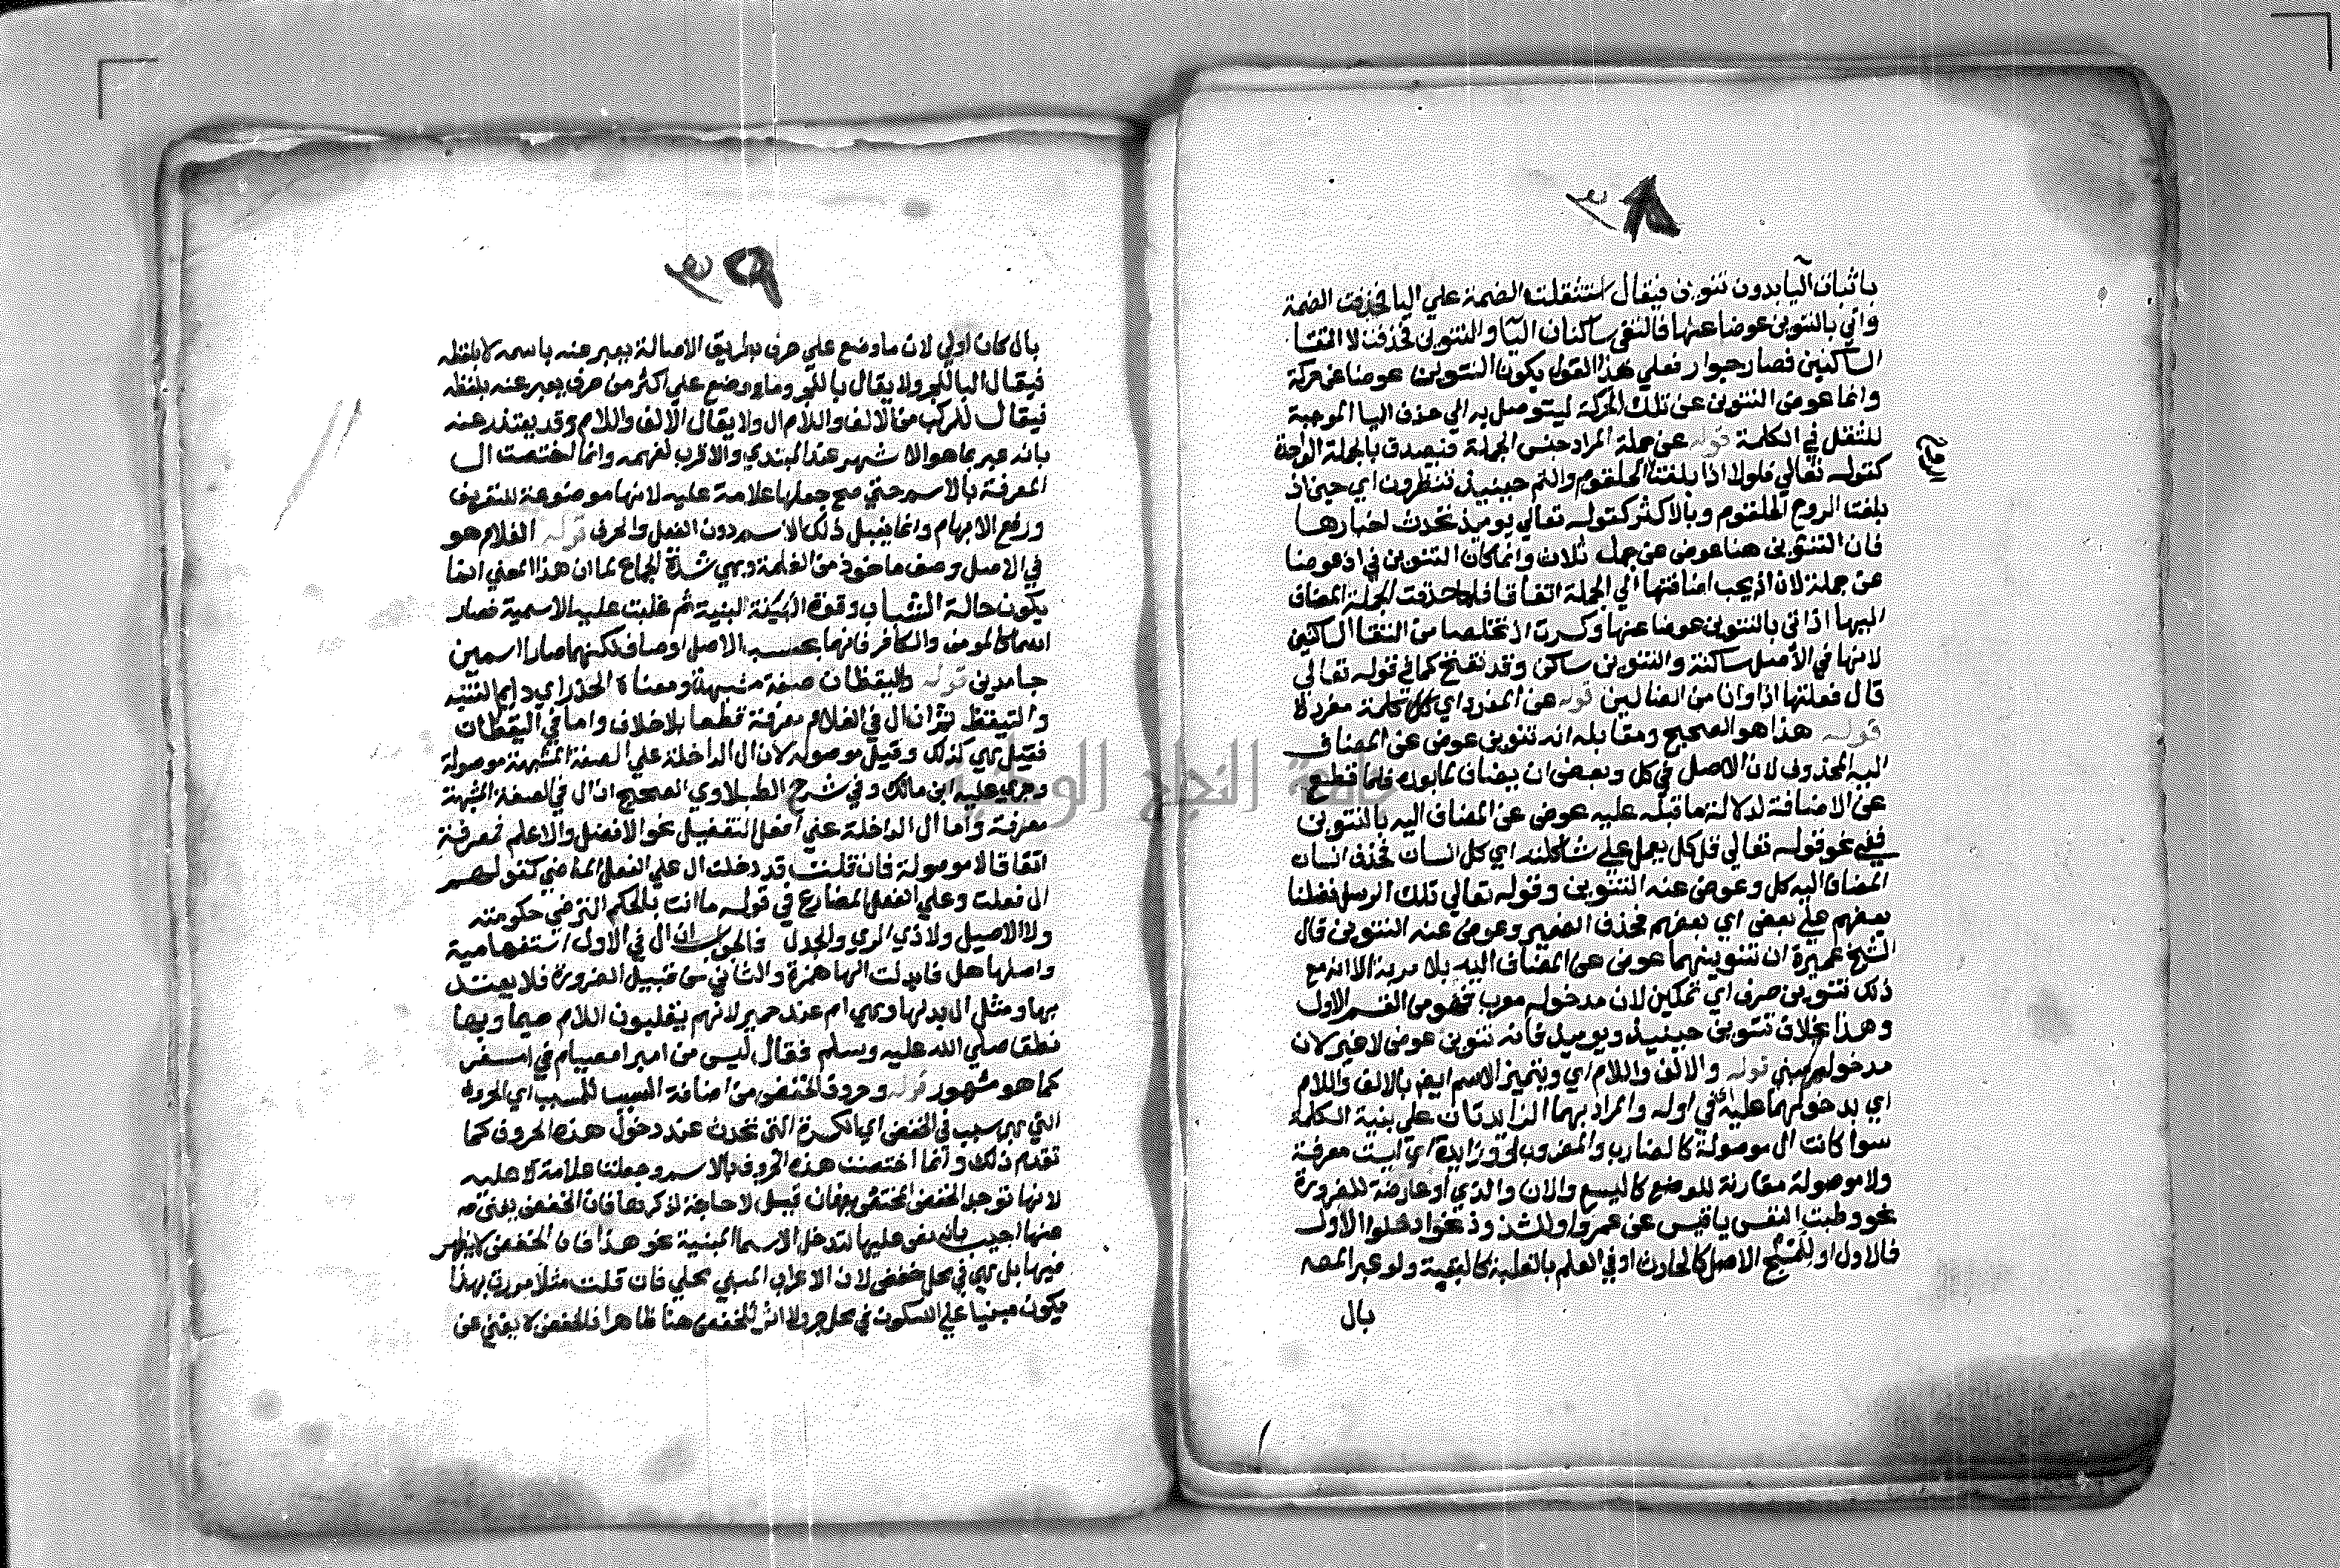 باثبات اليا بدون تنوين فيقال استثقلت الضمة علي اليا فحذفت الضمة
واتي بالتنوين عوضا عنها فالتقي ساكنان اليا والتنوين فحذفت لالتقا
الساكنين فصار جوار فعلي هذا القول يكون التنوين عوضا عن حركة
وانما عوض التنوين عن تلك الحركة ليتوصل به الي حذف اليا الموجبة
للثقل في الكلمة قوله عن جملة المراد جنس الجملة فيصدق بالجملة الواحدة
كقوله تعالي فلولا اذا بلغت الحلقوم وانتم حينيذ تنظرون اي حين اذ
بلغت الروح الحلقوم وبالاكثر كقوله تعالي يوميذ تحدث اخبارها
فان التنوين هنا عوض عن جمل ثلاث وانما كان التنوين في اذ عوضا
عن جملة لان اذ يجب اضافتها الي الجملة اتفاقا فلما حذفت الجملة المضاف
اليها اذ اتي بالتنوين عوضا عنها وكسرت اذ تخلصا من التقا الساكنين
لانها في الاصل ساكنة والتنوين ساكن وقد تفتح كما في قوله تعالي
قال فعلتها اذا وانا من الضالين قوله عن المفرد اي كل كلمة مفردة
قوله هذا هو الصحيح ومقابله انه تنوين عوض عن المضاف
اليه المحذوف لان الاصل في كل وبعض ان يضاف لما بعده فلما قطع
عن الاضافة لدلالة ما قبله عليه عوض عن المضاف اليه بالتنوين
ففي نحو قوله تعالي قل كل يعمل علي شاكلته اي كل انسان فحذف انسان
المضاف اليه كل وعوض عنه التنوين وقوله تعالي تلك الرسل فضلنا
بعضهم علي بعض اي بعضهم فحذف الضمير وعوض عنه التنوين قال
الشيخ عميرة ان تنوينهما عوض عن المضاف اليه بلا مرية الا انه مع
ذلك تنوين صرف اي تمكين لان مدخوله معرب فهو من القسم الاول
وهذا بخلاف تنوين حينيذ ويوميذ فانه تنوين عوض لا غير لان
مدخوله مبني قوله والالف واللام اي ويتميز الاسم ايض بالالف واللام
اي بدخولهما عليه في اوله والمراد بهما الزايدتان علي بنية الكلمة
سوا كانت ال موصولة كالضارب والمضروب او زايدة اي ليست معرفة
ولا موصولة مقارنة للوضع كاليسع والان والذي او عارضة للضرورة
نحو وطبت النفس يا قيس عن عمرو او للشذوذ نحو ادخلوا الاول
فالاول او للمح الاصل كالحارث او في العلم بالغلبة كالعقبة ولو عبر المصـ
بال
بال كان اولي لان ما وضع علي حرف بطريق الاصالة يعبر عنه باسمه لا بلفظه
فيقال البا للجر ولا يقال ب للجر وما وضع علي اكثر من حرف يعبر عنه بلفظه
فيقال للمركب من الالف واللام ال ولا يقال الالف واللام وقد يعتذر عنه
بانه عبر بما هو الاشهر عند المبتدي والاقرب لفهمه وانما اختصت ال
المعرفة بالاسم حتي صح جعلها علامة عليه لانها موضوعة للتعريف
ورفع الابهام وانما يقبل ذلك الاسم دون الفعل والحرف قوله الغلام هو
في الاصل وصف ماخوذ من الغلمة وهي شدة الجماع لما ان هذا المعني انما
يكون حالة الشباب وقوة البنية ثم غلبت عليه الاسمية فصار
اسما كالمومن والكافر فانهما بحسب الاصل اوصاف لكنهما صارا اسمين
جامدين قوله واليقظان صفة مشبهة ومعناه الحذر اي دايم التنبه
والتيقظ ثم ان ال في الغلام معرفة قطعا بلا خلاف واما في اليقظان
فقيل هي كذلك وقيل موصولة لان ال الداخلة علي الصفة المشبهة موصولة
وجري عليه ابن مالك وفي شرح الطبلاوي الصحيح ان ال في الصفة المشبهة
معرفة واما ال الداخلة علي افعل التفضيل نحو الافضل والاعلم فمعرفة
اتفاقا لا موصولة فان قلت قد دخلت ال علي الفعل الماضي كقولهم
ال فعلت وعلي الفعل المضارع في قوله ما انت بالحكم الترضي حكومته
ولا الاصيل ولا ذي الري والجدل فالجواب ان ال في الاول استفهامية
واصلها هل فابدلت الها همزة والثاني من قبيل الضرورة فلا يعتد
بها ومثل ال بدلها وهي ام عند حمير لانهم يقلبون اللام ميما وبها
نطق صلي الله عليه وسلم فقال ليس من امبر امصيام في امسفر
كما هو مشهور قوله وحروف الخفض من اضافة السبب للمسبب اي الحروف
التي هي سبب في الخفض اي الكسرة التي تحدث عند دخول هذه الحروف كما
تقدم ذلك وانما اختصت هذه الحروف بالاسم وجعلت علامة عليه
لانها توجد الخفض المختص به فان قيل لا حاجة لذكرها فان الخفض يغني
عنها اجيب بانه نص عليها لتدخل الاسما المبنية نحو هذا فان الخفض لا يظهر
فيها بل هي في محل خفض لان الاعراب المبني محلي فان قلت مثلا مررت بهذا
يكون مبنيا علي السكون في محل جر ولا اثر للخفض هنا ظاهرا فالخفض لا يغني عن
جامعة النجاح الوطنية